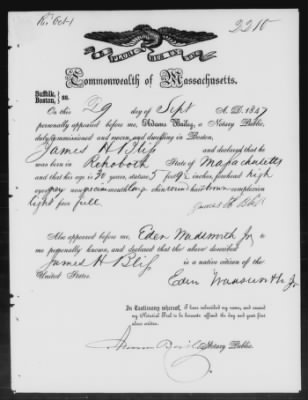 2210
Commonwealth of Massachusetts.
Suffolk,
Boston, } ss.
On this 29 day of Sept A. D. 1847
personally appeared before me, Adams Bailey, a Notary Public,
duly commissioned and sworn, and dwelling in Boston,
James H Bliss and declared that he
was born in Rehoboth State of Massachusetts
and that his age is 30 years, stature 5 feet 9½ inches, forehead high
eyes grey nose mouth chin hair brown complexion
light face full
James H Bliss
Also appeared before me, Eden Wadsworth Jr, to
me personally known, and declared that the above described
James H Bliss is a native citizen of the
United States.
Eden Wadsworth Jr
In Testimony whereof, I have subscribed my name, and caused
my Notarial Seal to be hereunto affixed the day and year first
above written.
Notary Public.